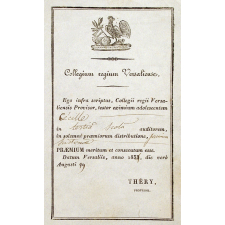 Collegium regium Versaliense.
Ego infra scriptus, Collegii regii Versa-
liensis Provisor, testor eximium adolescentem
in auditorem,
in solemni præmiorum distributione,
PRÆMIUM meritum et consecutum esse.
Datum Versaliis, anno 18 die verò
Augusti
THÉRY,
PROVISOR.